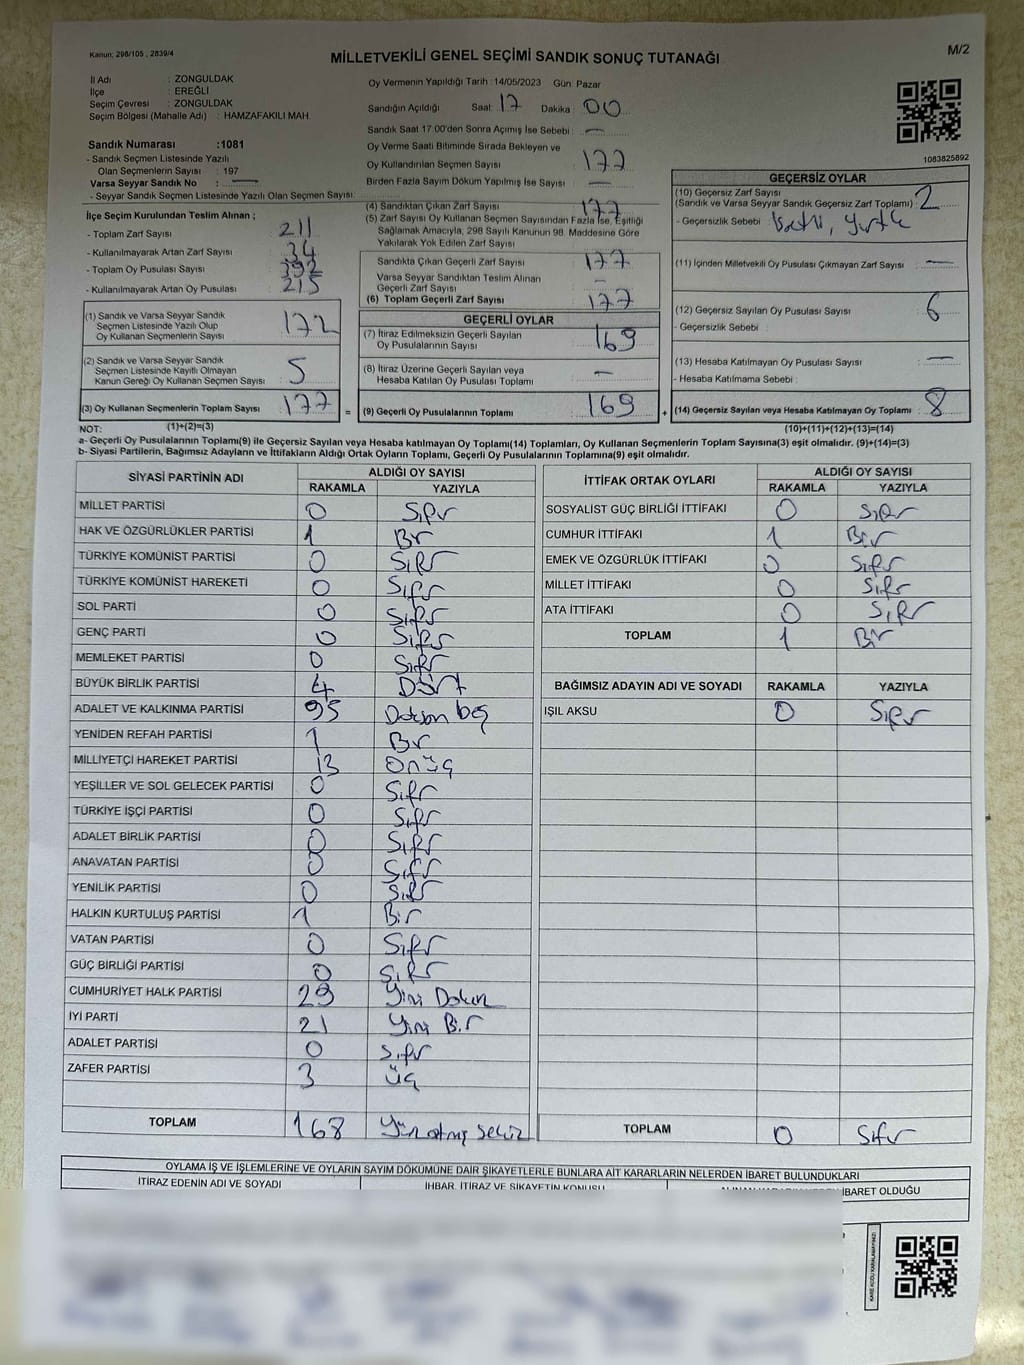 Kanun; 298/105 , 2839/4
MİLLETVEKİLİ GENEL SEÇİMİ SANDIK SONUÇ TUTANAĞI
M/2
İl Adı : ZONGULDAK
İlçe : EREĞLİ
Seçim Çevresi : ZONGULDAK
Seçim Bölgesi (Mahalle Adı) : HAMZAFAKILI MAH.
Oy Vermenin Yapıldığı Tarih : 14/05/2023 Gün: Pazar
Sandığın Açıldığı Saat: 17 Dakika : 00
Sandık Saat 17.00'den Sonra Açımış İse Sebebi : —
Oy Verme Saati Bitiminde Sırada Bekleyen ve
Oy Kullandırılan Seçmen Sayısı : 177
Birden Fazla Sayım Döküm Yapılmış İse Sayısı : —
1083825892
Sandık Numarası :1081
- Sandık Seçmen Listesinde Yazılı
Olan Seçmenlerin Sayısı : 197
Varsa Seyyar Sandık No : —
- Seyyar Sandık Seçmen Listesinde Yazılı Olan Seçmen Sayısı:
İlçe Seçim Kurulundan Teslim Alınan ;
- Toplam Zarf Sayısı : 211
- Kullanılmayarak Artan Zarf Sayısı : 34
- Toplam Oy Pusulası Sayısı : 392
- Kullanılmayarak Artan Oy Pusulası : 215
(1) Sandık ve Varsa Seyyar Sandık
Seçmen Listesinde Yazılı Olup
Oy Kullanan Seçmenlerin Sayısı : 172
(2) Sandık ve Varsa Seyyar Sandık
Seçmen Listesinde Kayıtlı Olmayan
Kanun Gereği Oy Kullanan Seçmen Sayısı : 5
(3) Oy Kullanan Seçmenlerin Toplam Sayısı : 177
(4) Sandıktan Çıkan Zarf Sayısı : 177
(5) Zarf Sayısı Oy Kullanan Seçmen Sayısından Fazla İse, Eşitliği
Sağlamak Amacıyla, 298 Sayılı Kanunun 98. Maddesine Göre
Yakılarak Yok Edilen Zarf Sayısı :
Sandıkta Çıkan Geçerli Zarf Sayısı : 177
Varsa Seyyar Sandıktan Teslim Alınan
Geçerli Zarf Sayısı : —
(6) Toplam Geçerli Zarf Sayısı : 177
GEÇERLİ OYLAR
(7) İtiraz Edilmeksizin Geçerli Sayılan
Oy Pusulalarının Sayısı : 169
(8) İtiraz Üzerine Geçerli Sayılan veya
Hesaba Katılan Oy Pusulası Toplamı : —
= (9) Geçerli Oy Pusulalarının Toplamı : 169
GEÇERSİZ OYLAR
(10) Geçersiz Zarf Sayısı
(Sandık ve Varsa Seyyar Sandık Geçersiz Zarf Toplamı) : 2
- Geçersizlik Sebebi :
(11) İçinden Milletvekili Oy Pusulası Çıkmayan Zarf Sayısı : —
(12) Geçersiz Sayılan Oy Pusulası Sayısı : 6
- Geçersizlik Sebebi :
(13) Hesaba Katılmayan Oy Pusulası Sayısı : —
- Hesaba Katılmama Sebebi :
+ (14) Geçersiz Sayılan veya Hesaba Katılmayan Oy Toplamı : 8
NOT: (1)+(2)=(3) (10)+(11)+(12)+(13)=(14)
a- Geçerli Oy Pusulalarının Toplamı(9) ile Geçersiz Sayılan veya Hesaba katılmayan Oy Toplamı(14) Toplamları, Oy Kullanan Seçmenlerin Toplam Sayısına(3) eşit olmalıdır. (9)+(14)=(3)
b- Siyasi Partilerin, Bağımsız Adayların ve İttifakların Aldığı Ortak Oyların Toplamı, Geçerli Oy Pusulalarının Toplamına(9) eşit olmalıdır.
SİYASİ PARTİNİN ADI ALDIĞI OY SAYISI
RAKAMLA YAZIYLA
MİLLET PARTİSİ 0 Sıfır
HAK VE ÖZGÜRLÜKLER PARTİSİ 1 Bir
TÜRKİYE KOMÜNİST PARTİSİ 0 Sıfır
TÜRKİYE KOMÜNİST HAREKETİ 0 Sıfır
SOL PARTİ 0 Sıfır
GENÇ PARTİ 0 Sıfır
MEMLEKET PARTİSİ 0 Sıfır
BÜYÜK BİRLİK PARTİSİ 4 Dört
ADALET VE KALKINMA PARTİSİ 95 Doksan beş
YENİDEN REFAH PARTİSİ 1 Bir
MİLLİYETÇİ HAREKET PARTİSİ 13 Onüç
YEŞİLLER VE SOL GELECEK PARTİSİ 0 Sıfır
TÜRKİYE İŞÇİ PARTİSİ 0 Sıfır
ADALET BİRLİK PARTİSİ 0 Sıfır
ANAVATAN PARTİSİ 0 Sıfır
YENİLİK PARTİSİ 0 Sıfır
HALKIN KURTULUŞ PARTİSİ 1 Bir
VATAN PARTİSİ 0 Sıfır
GÜÇ BİRLİĞİ PARTİSİ 0 Sıfır
CUMHURİYET HALK PARTİSİ 29 Yirmi Dokuz
İYİ PARTİ 21 Yirmi Bir
ADALET PARTİSİ 0 Sıfır
ZAFER PARTİSİ 3 üç
TOPLAM 168 Yüzatmış sekiz
İTTİFAK ORTAK OYLARI ALDIĞI OY SAYISI
RAKAMLA YAZIYLA
SOSYALİST GÜÇ BİRLİĞİ İTTİFAKI 0 Sıfır
CUMHUR İTTİFAKI 1 Bir
EMEK VE ÖZGÜRLÜK İTTİFAKI 0 Sıfır
MİLLET İTTİFAKI 0 Sıfır
ATA İTTİFAKI 0 Sıfır
TOPLAM 1 Bir
BAĞIMSIZ ADAYIN ADI VE SOYADI RAKAMLA YAZIYLA
IŞIL AKSU 0 Sıfır
TOPLAM 0 Sıfır
OYLAMA İŞ VE İŞLEMLERİNE VE OYLARIN SAYIM DÖKÜMÜNE DAİR ŞİKAYETLERLE BUNLARA AİT KARARLARIN NELERDEN İBARET BULUNDUKLARI
İTİRAZ EDENİN ADI VE SOYADI İHBAR, İTİRAZ VE ŞİKAYETİN KONUSU İBARET OLDUĞU